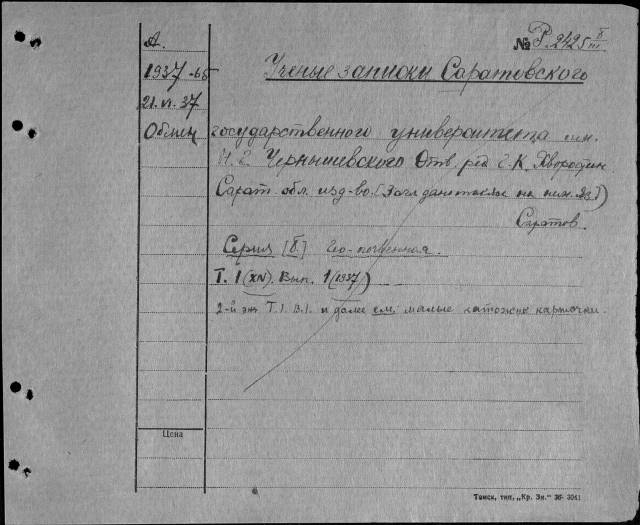 А.
№ Р 2425 II/III
1937-65
Ученые записки Саратовского
21.VI.37
Обмен государственного университета им.
Н. Г. Чернышевского Отв. ред. Г. К. Хворостин
Сарат. обл. изд-во. [Загл. дано также на
Саратов.
Серия [II]. Гео-почвенная.
Т. 1(XIV). Вып. 1(1937)
2-й экз. Т.1. В.1. и далее см. малые каточные карточки.
Цена
Томск, тип. „Кр. Зн." 36- 3041